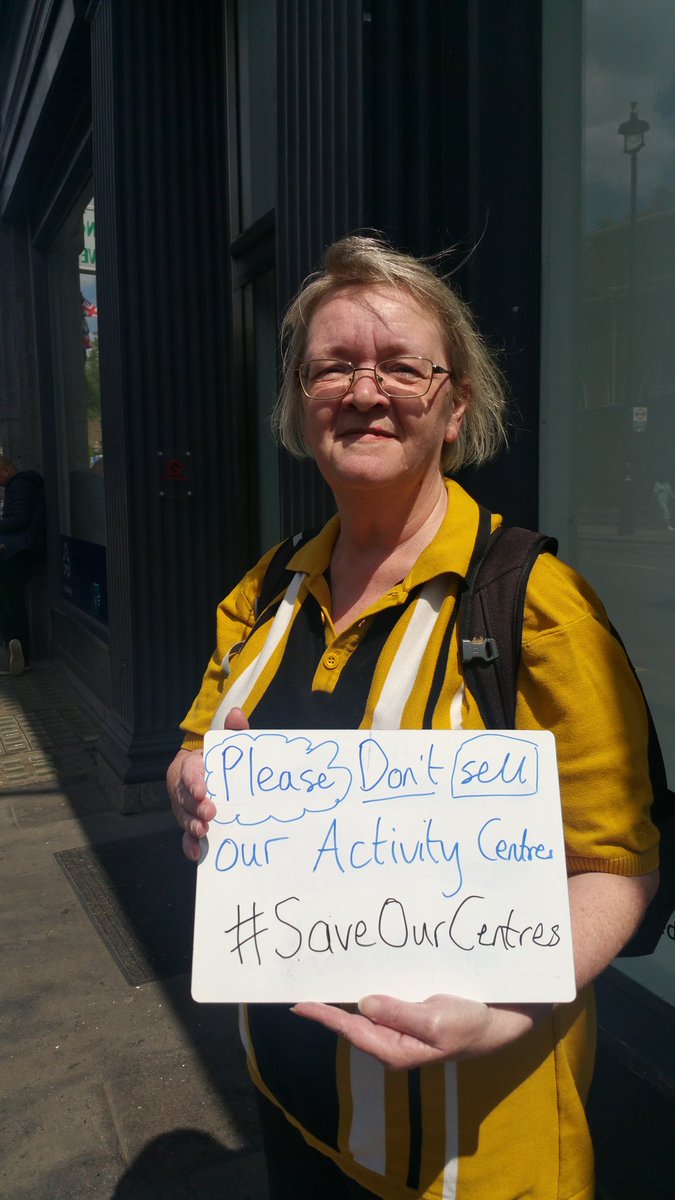 Please Don't sell
our Activity Centres
#SaveOurCentres